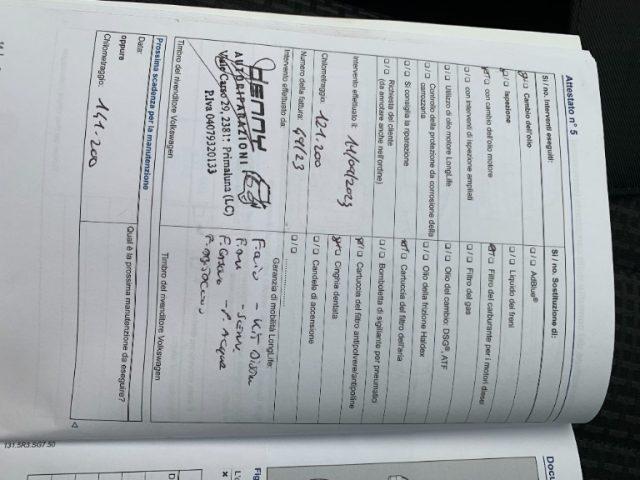 Attestato n° 5
Sì / no. Interventi eseguiti:
Cambio dell'olio
Ispezione
con cambio dell'olio motore
con interventi di ispezione ampliati
Utilizzo di olio motore LongLife
Controllo della protezione da corrosione della carrozzeria
Si consiglia la riparazione
Richiesta del cliente
(da annotare anche nell'ordine)
Intervento effettuato il:
Chilometraggio: 121.200
Numero della fattura: 49/23
Intervento effettuato da:
DENNY
AUTORIPARAZIONI
23817 - Primaluna (LC)
P.Iva 04079320133
Timbro del rivenditore Volkswagen
Sì / no. Sostituzione di:
AdBlue®
Liquido dei freni
Filtro del carburante per i motori diesel
Filtro del gas
Olio del cambio: DSG®, ATF
Olio della frizione Haldex
Cartuccia del filtro dell'aria
Bomboletta di sigillante per pneumatici
Cartuccia del filtro antipolvere/antipolline
Cinghia dentata
Candele di accensione
Garanzia di mobilità LongLife:
Timbro del rivenditore Volkswagen
Prossima scadenza per la manutenzione
Data:
oppure
Chilometraggio: 141.200
Qual è la prossima manutenzione da eseguire?
131.5R3.SG7.50
Docu